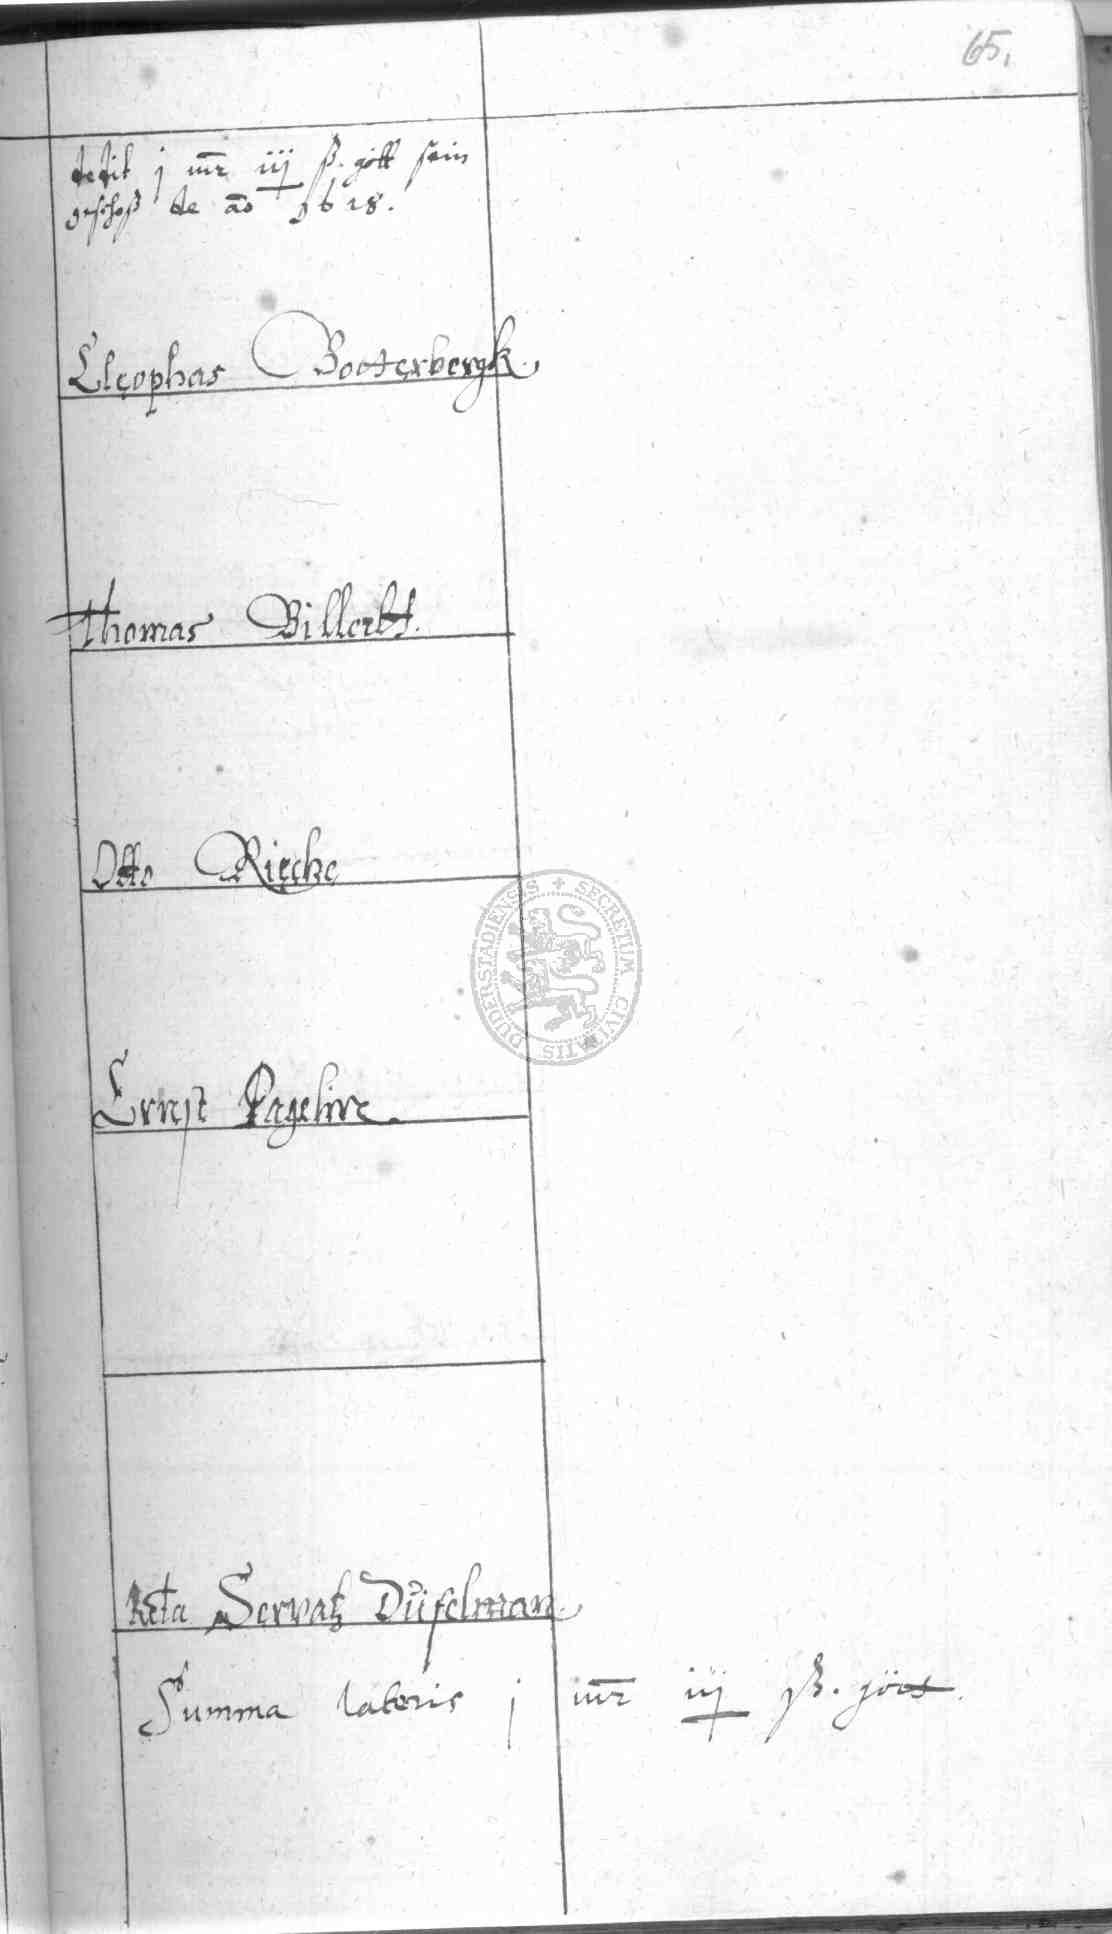 65.
dedit j mr iij ß. gött sein
geschoß de ao 1618.
Cleophas Booterbergk.
Thomas Billerbt.
Otto Riecke
Ernst
Servatz Düfelman
Summa lateris j mr iij ß. gött.
SECRETUM CIVITATIS DUDERSTADIENSIS